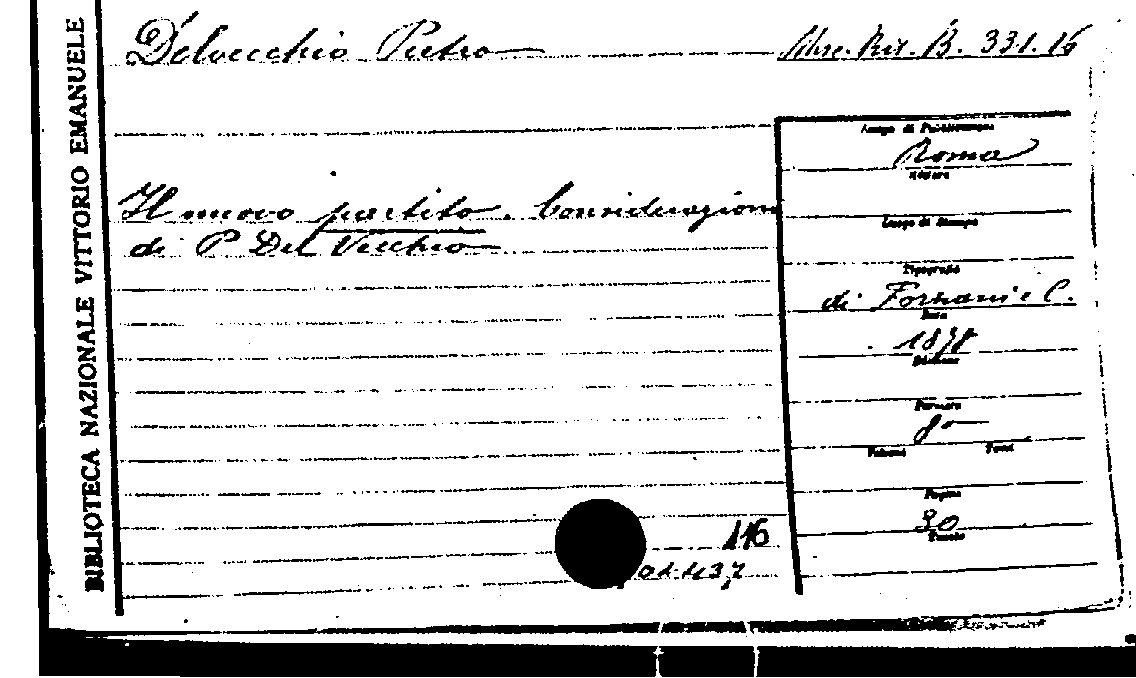 BIBLIOTECA NAZIONALE VITTORIO EMANUELE
Delvecchio Pietro
Misc. Ris. B. 331. 16
Il nuovo partito. Considerazioni
di P. Del Vecchio
Luogo di Pubblicazione
Roma
Editore
Luogo di Stampa
Tipografia
di Forzani e C.
Data
1878
Edizione
Formato
8º
Volumi Tomi
Pagine
30
Tavole
116